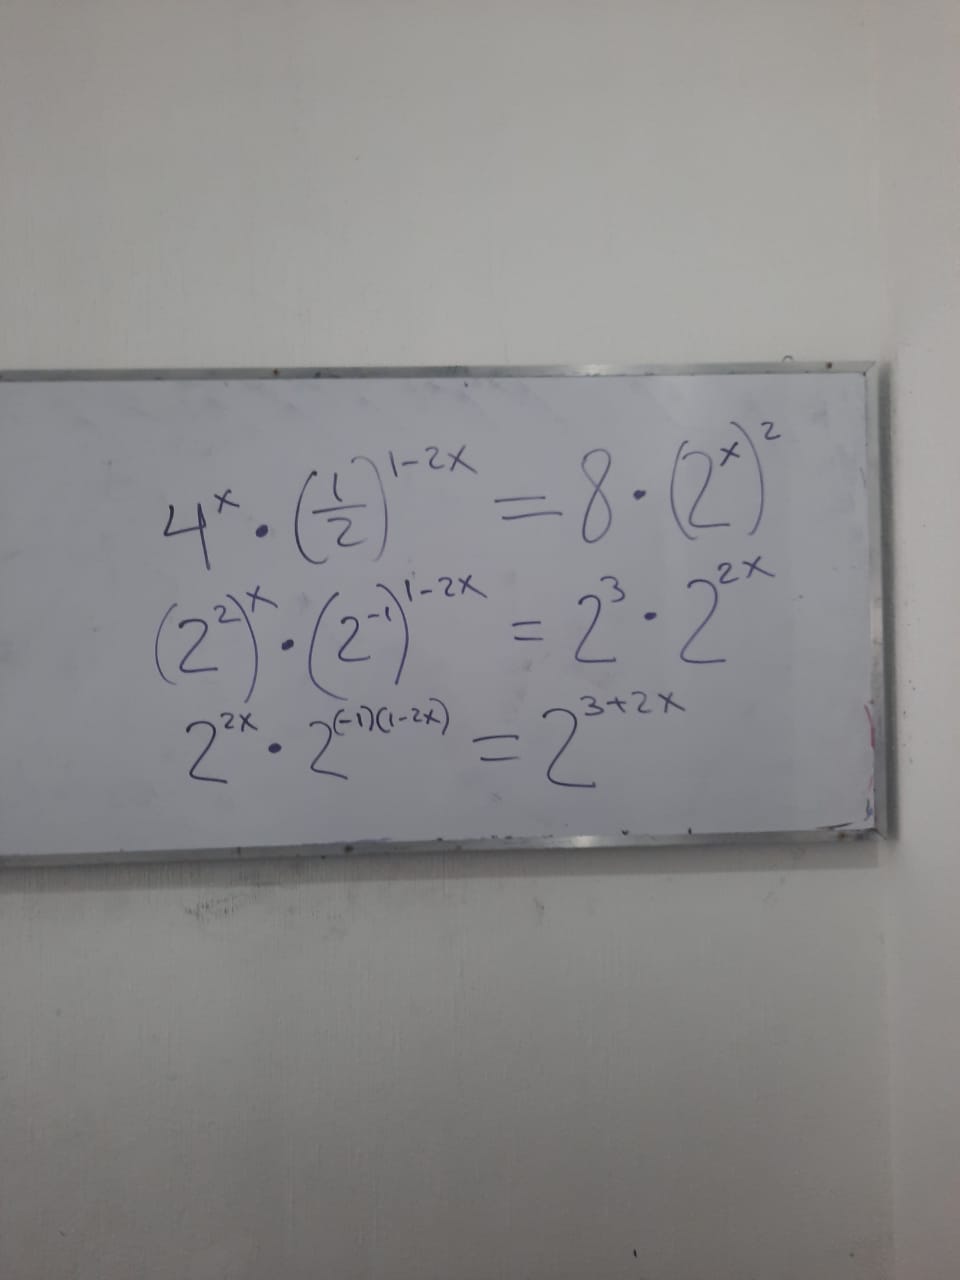 4^x · (1/2)^(1-2x) = 8 · (2^x)^2
(2^2)^x · (2^-1)^(1-2x) = 2^3 · 2^(2x)
2^(2x) · 2^((-1)(1-2x)) = 2^(3+2x)